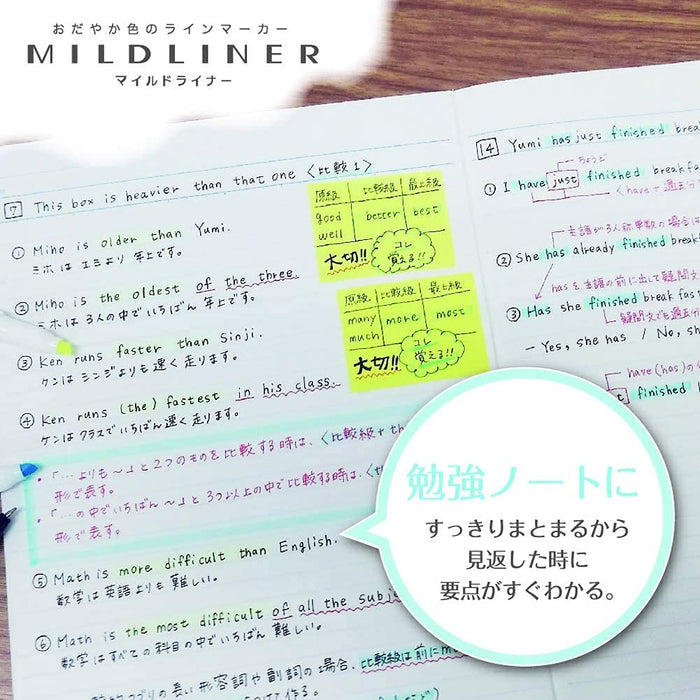 おだやか色のラインマーカー
MILDLINER
マイルドライナー
7 This box is heavier than that one 〈比較1〉
① Miho is older than Yumi.
ミホは エミより 年上です。
② Miho is the oldest of the three.
ミホは 3人の中でいちばん 年上です。
③ Ken runs faster than Sinji.
ケンは シンジよりも 速く 走ります。
④ Ken runs (the) fastest in his class.
ケンは クラスで いちばん 速く 走ります。
・「…よりも〜」と2つのものを比較する時は、〈比較級+th
形で表す。
・「…の中でいちばん〜」と3つ以上の中で比較する時は、〈th
形で表す。
⑤ Math is more difficult than English.
数学は 英語よりも 難しい。
⑥ Math is the most difficult of all the subje
数学は すべての 科目の中で いちばん 難しい。
つづりの長い形容詞や副詞の場合、比較級は前にmo
原級 比較級 最上級
good better best
well
大切!! コレ覚える!!
原級 比較級 最上級
many more most
much
大切!! コレ覚える!!
14 Yumi has just finished break
ちょうど
① I have just finished breakfa
〈have+過去分
主語が3人称単数の場合は
② She has already finished break
hasを主語の前に出して疑問文
③ Has she finished break fas
疑問文でも過去分
- Yes, she has / No, she
have(has)の
finished
勉強ノートに
すっきりまとまるから
見返した時に
要点がすぐわかる。